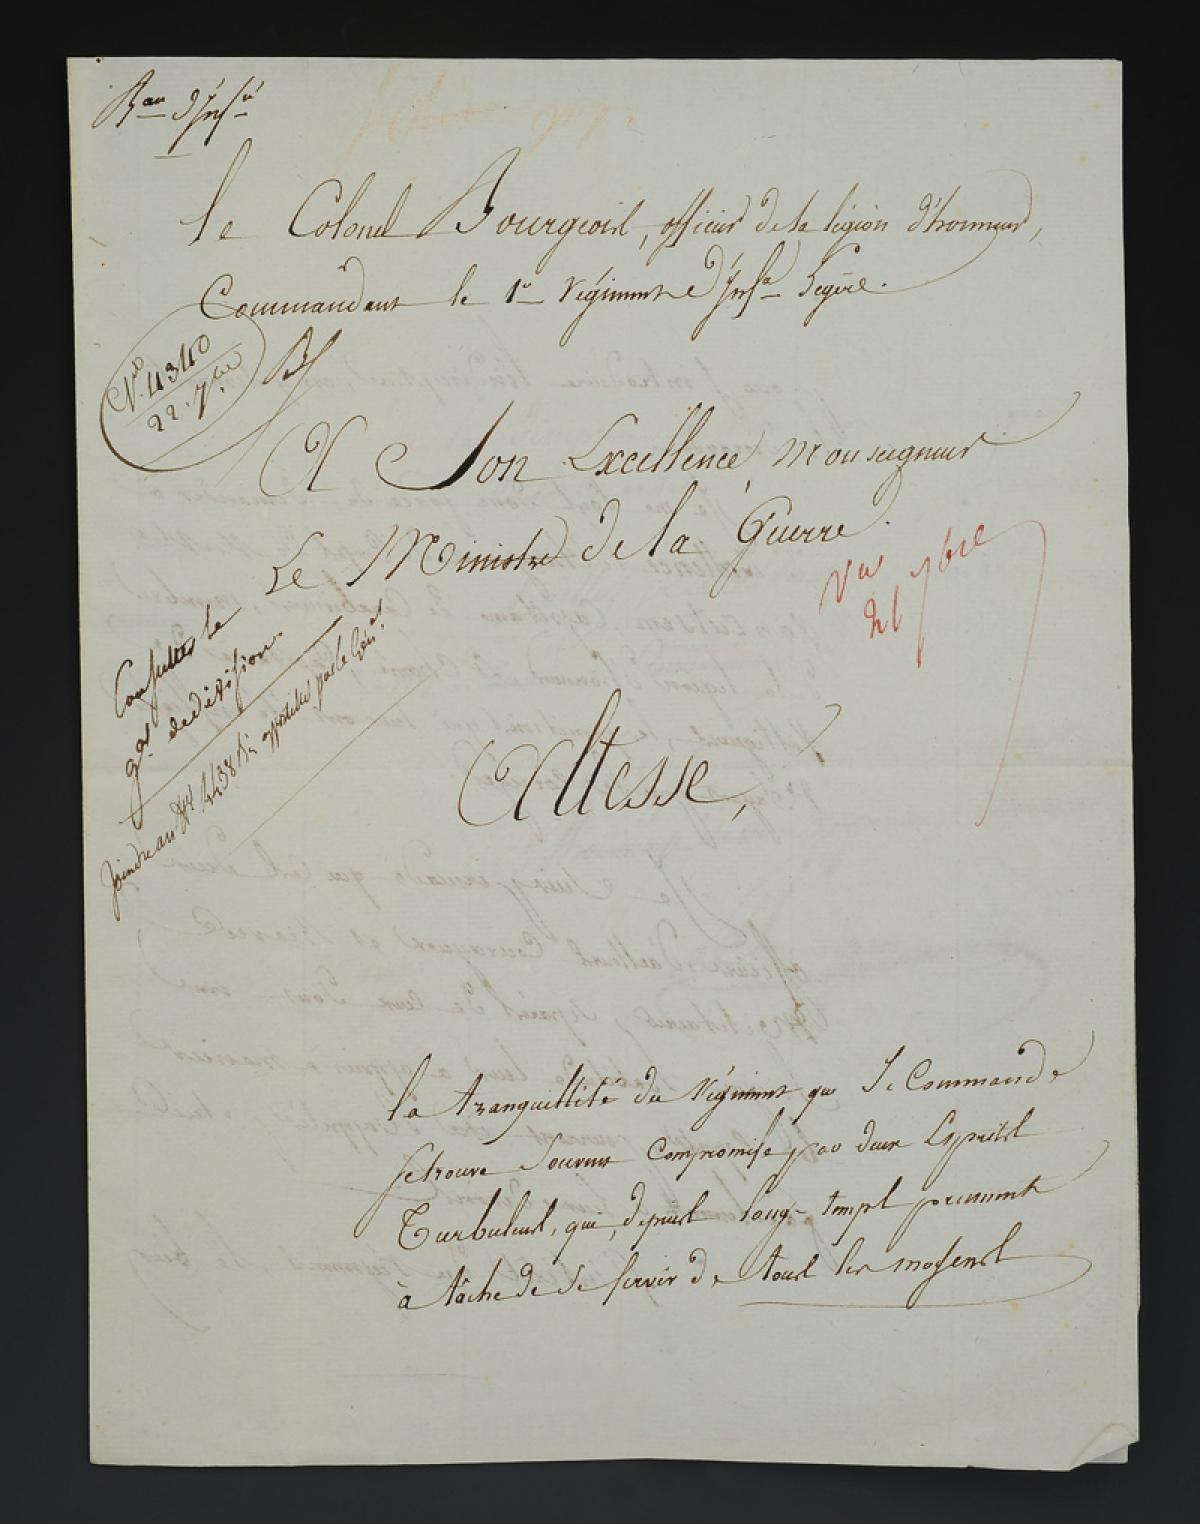 Bau d'Infie
le Colonel Bourgeois, officier de la légion d'honneur,
Commandant le 1er Régiment d'Infie Légère.
No 4340
22. 7bre
A Son Excellence, Monseigneur
Le Ministre de la Guerre.
Vu
21 7bre
Consulter le
gal de division
Joindre au No 4438 bis apostillée par le Général
Altesse,
la tranquillité du Régiment que Je Commande
se trouve Souvent compromise par deux Esprits
Turbulents, qui, depuis long-temps prennent
à tâche de se servir de tous les moyens